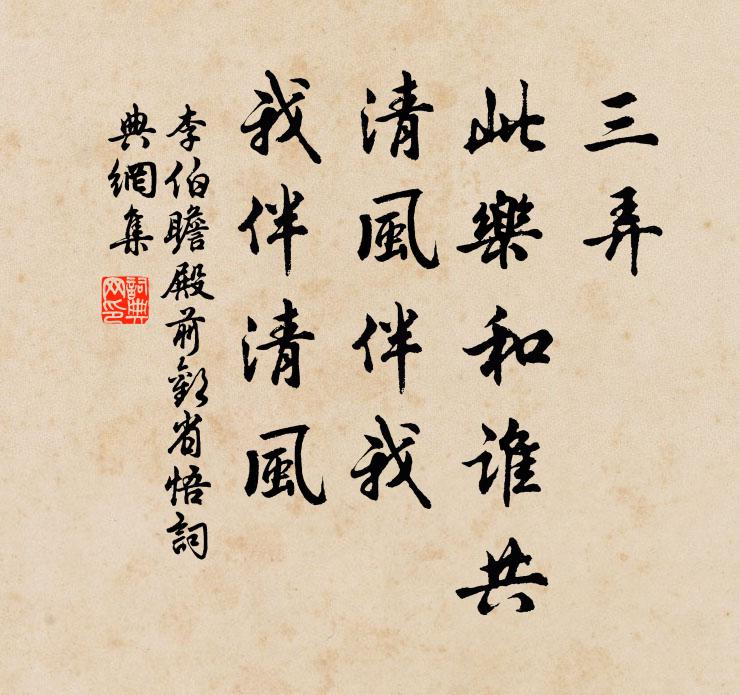 三弄
此樂和谁共
清風伴我
我伴清風
李伯瞻殿前歡省悟詞
典網集
詞典
网印